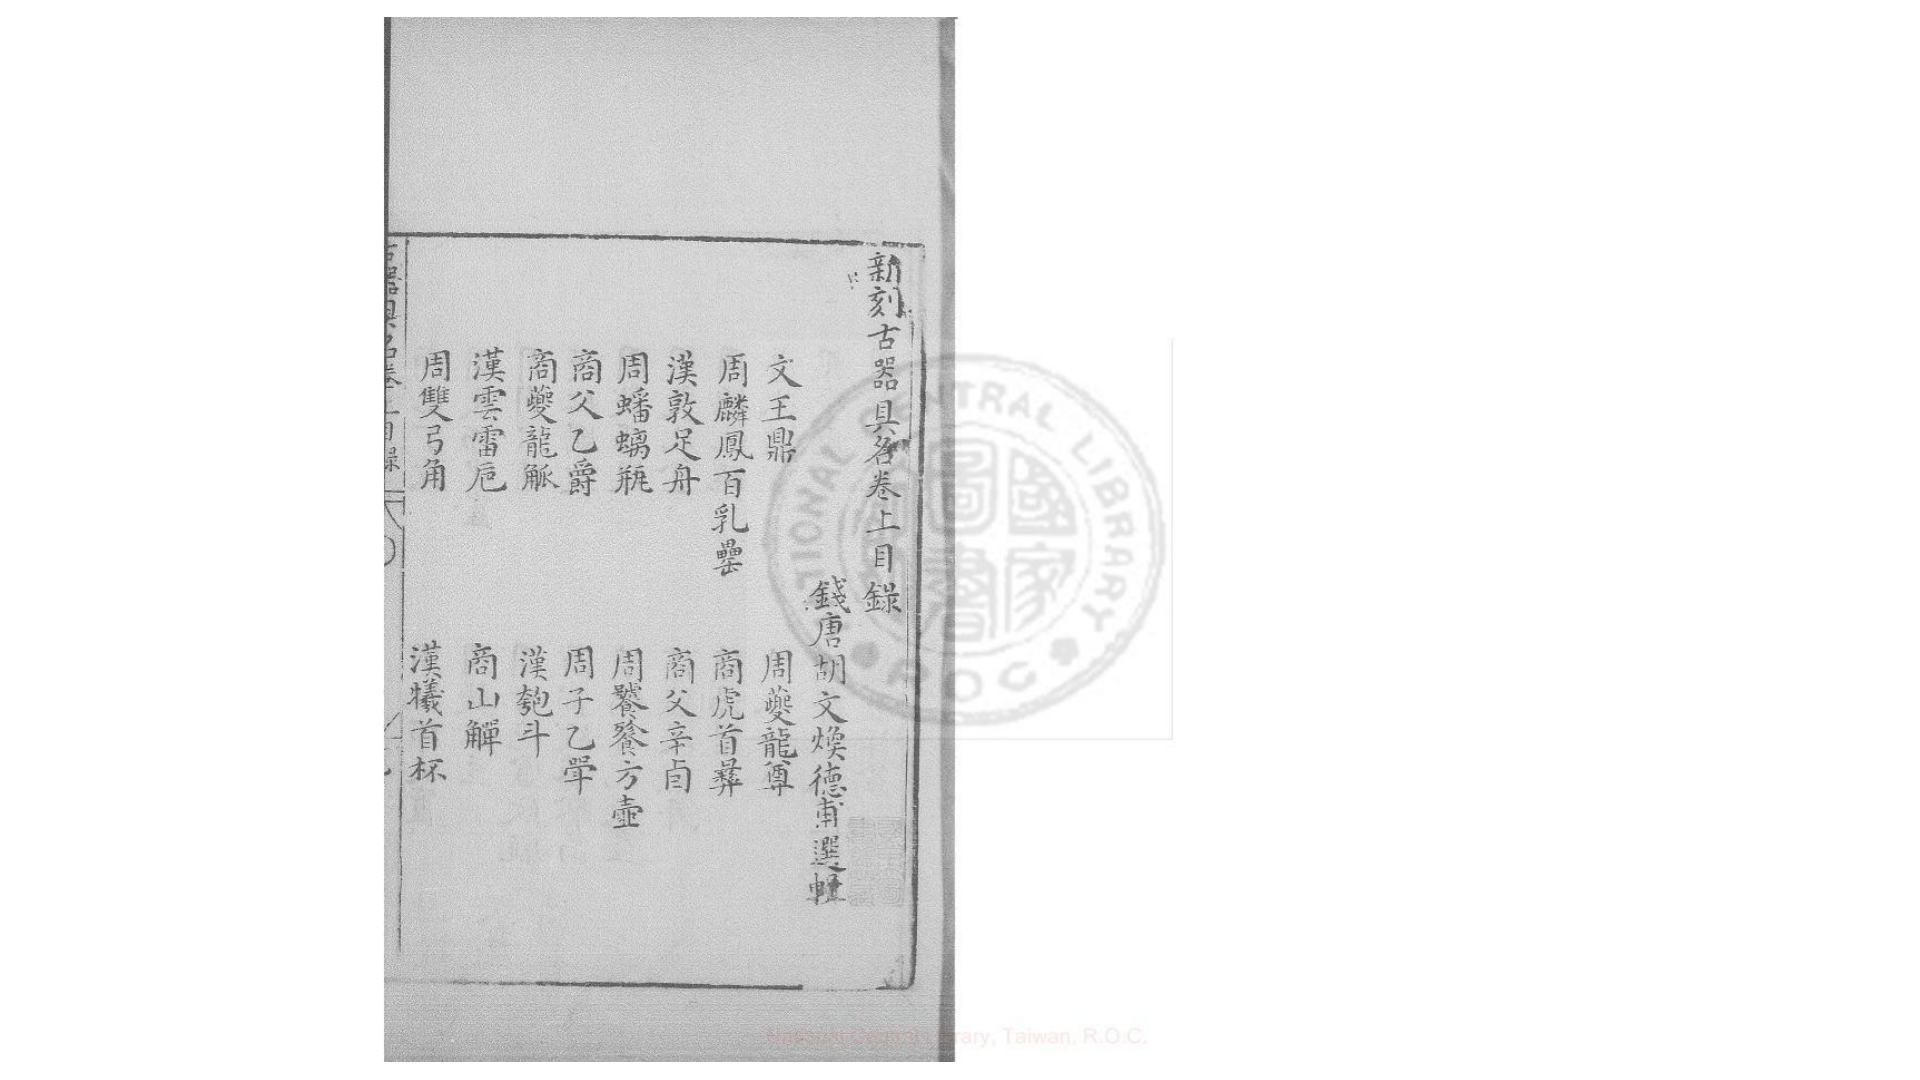 新刻古器具名卷上目錄
錢唐胡文煥德甫選輯
文王鼎
周夔龍尊
周麟鳳百乳罍
商虎首彞
漢敦足舟
商父辛卣
周蟠螭瓶
周饕餮方壷
商父乙爵
周子乙斝
商夔龍觚
漢匏斗
漢雲雷巵
商山觶
周雙弓角
漢犧首杯
NATIONAL CENTRAL LIBRARY
ROC
國家圖書館
National Central Library, Taiwan, R.O.C.